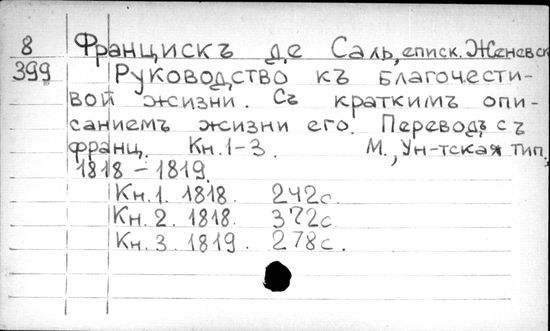 8 Францискъ де Саль, еписк. Женевск
399 Руководство къ благочести-
вой жизни. Съ краткимъ опи-
санiемъ жизни его. Переводъ съ
франц. Кн. 1-3. М., Ун-тская тип.,
1818 - 1819.
Кн. 1. 1818. 242с.
Кн. 2. 1818. 372с.
Кн. 3. 1819. 278с.